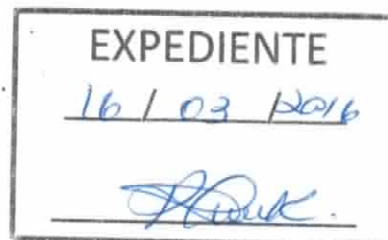 EXPEDIENTE
16 / 03 / 2016